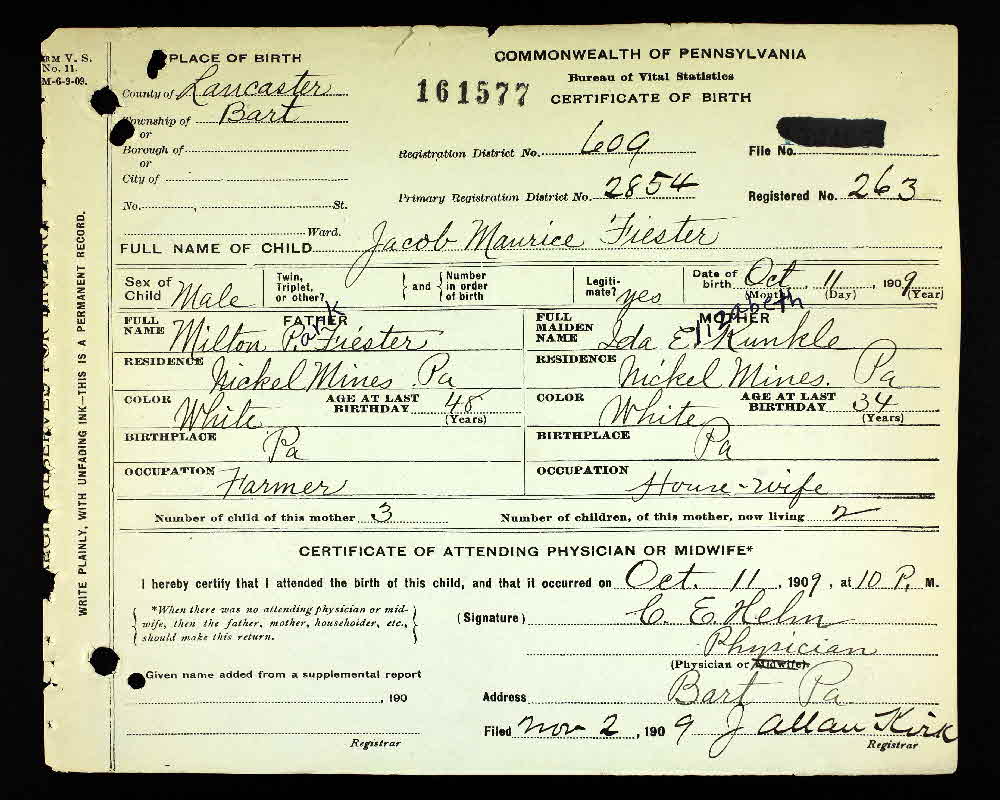 RM V. S.
No. 11.
M-6-9-09.
PLACE OF BIRTH
County of Lancaster
Township of Bart
or
Borough of
or
City of
No. , St.
Ward.
COMMONWEALTH OF PENNSYLVANIA
Bureau of Vital Statistics
161577 CERTIFICATE OF BIRTH
Registration District No. 609
File No.
Primary Registration District No. 2854
Registered No. 263
FULL NAME OF CHILD Jacob Maurice Fiester
Sex of Child Male
Twin, Triplet, or other?
and
Number in order of birth
Legitimate? yes
Date of birth Oct , 11 , 1909
(Month) (Day) (Year)
FATHER
FULL NAME Milton Park Fiester
RESIDENCE Nickel Mines. Pa
COLOR White
AGE AT LAST BIRTHDAY 48
(Years)
BIRTHPLACE Pa
OCCUPATION Farmer
MOTHER
FULL MAIDEN NAME Ida Elizabeth Kunkle
RESIDENCE Nickel Mines. Pa
COLOR White
AGE AT LAST BIRTHDAY 34
(Years)
BIRTHPLACE Pa
OCCUPATION House-wife
Number of child of this mother 3
Number of children, of this mother, now living 2
CERTIFICATE OF ATTENDING PHYSICIAN OR MIDWIFE*
I hereby certify that I attended the birth of this child, and that it occurred on Oct. 11 , 1909, at 10 P. M.
*When there was no attending physician or mid-
wife, then the father, mother, householder, etc.,
should make this return.
(Signature) C. E. Helm
Physician
(Physician or Midwife).
Given name added from a supplemental report
, 190
Registrar
Address Bart Pa
Filed Nov 2 , 1909 J Allan Kirk
Registrar
WRITE PLAINLY, WITH UNFADING INK—THIS IS A PERMANENT RECORD.